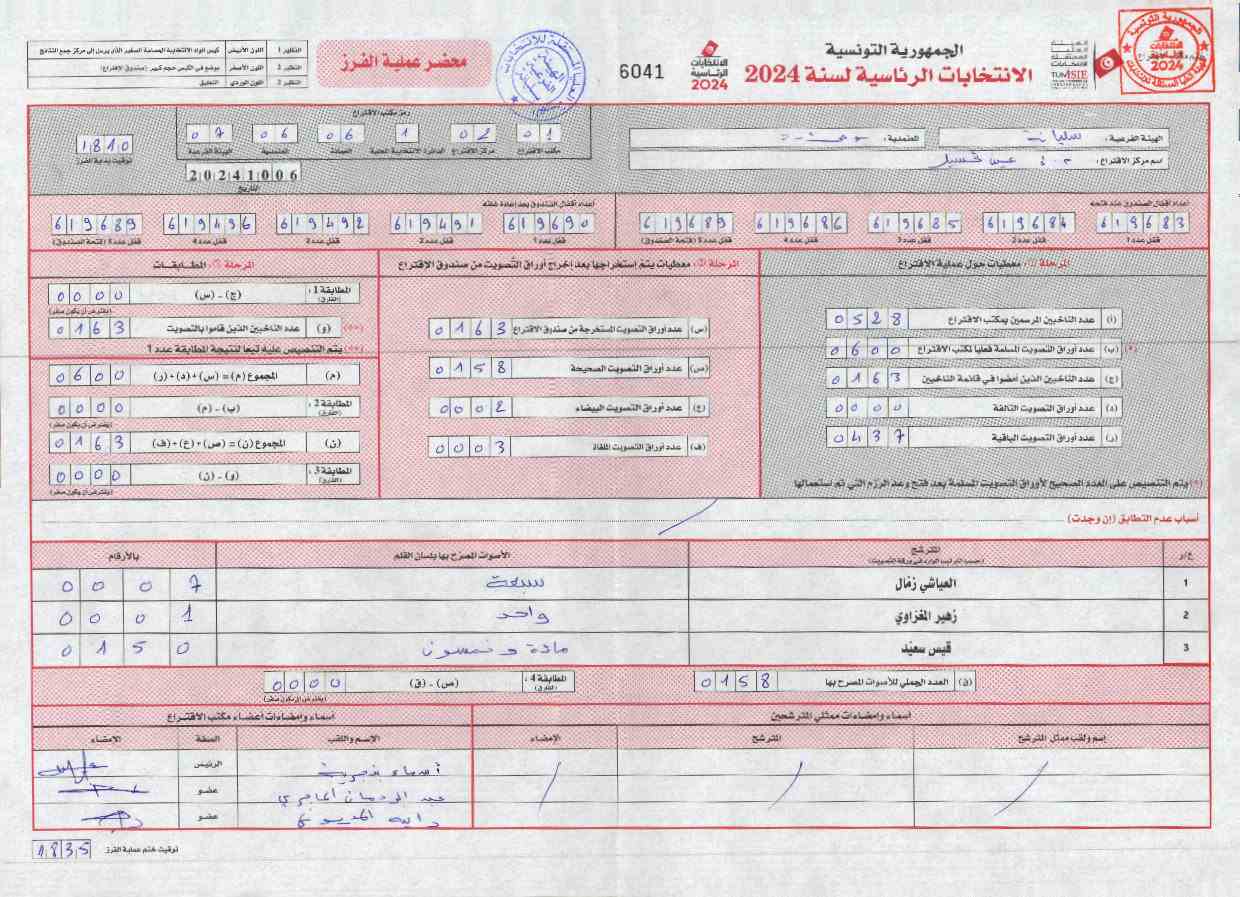 الجمهورية التونسية
الانتخابات الرئاسية لسنة 2024
الانتخابات
الرئاسية
2024
6041
محضر عملية الفرز
النظير 1 اللون الأبيض
النظير 2 اللون الأصفر
النظير 3 اللون الوردي التعليق
الهيئة الفرعية: سليانة
المعتمدية:
اسم مركز الاقتراع:
رمز مكتب الاقتراع
01 مكتب الاقتراع
02 مركز الاقتراع
1
06 العمادة
06 المعتمدية
07 الهيئة الفرعية
1810
توقيت بداية الفرز
20241006
التاريخ
أعداد أقفال الصندوق عند فتحه
619683 619684 619685 619686 619689
قفل عدد 1 قفل عدد 2 قفل عدد 3 قفل عدد 4 قفل عدد 5 (فتحة الصندوق)
أعداد أقفال الصندوق بعد إعادة غلقه
619690 619491 619492 619496 619689
قفل عدد 1 قفل عدد 2 قفل عدد 3 قفل عدد 4 قفل عدد 5 (فتحة الصندوق)
المرحلة ①: معطيات حول عملية الاقتراع
(أ) عدد الناخبين المرسمين بمكتب الاقتراع 0528
(*) (ب) عدد أوراق التصويت المسلمة فعليا لمكتب الاقتراع 0600
(ج) عدد الناخبين الذين أمضوا في قائمة الناخبين 0163
(د) عدد أوراق التصويت التالفة 0000
(ر) عدد أوراق التصويت الباقية 0437
(*) يتم التنصيص على العدد الصحيح لأوراق التصويت المسلمة بعد فتح وعد الرزم التي تم استعمالها
المرحلة ②: معطيات يتم إستخراجها بعد إخراج أوراق التصويت من صندوق الاقتراع
(س) عدد أوراق التصويت المستخرجة من صندوق الاقتراع 0163
(ص) عدد أوراق التصويت الصحيحة 0158
(ع) عدد أوراق التصويت البيضاء 0002
(ف) عدد أوراق التصويت الملغاة 0003
المرحلة ③: المطابقات
المطابقة 1: (الفارق) (ج) - (س) 0000
(يفترض أن يكون صفر)
(**) (و) عدد الناخبين الذين قاموا بالتصويت 0163
(**) يتم التنصيص عليه تبعا لنتيجة المطابقة عدد 1
(م) المجموع (م) = (س)+(د)+(ر) 0600
المطابقة 2: (الفارق) (ب) - (م) 0000
(يفترض أن يكون صفر)
(ن) المجموع (ن) = (ص)+(ع)+(ف) 0163
المطابقة 3: (الفارق) (و) - (ن) 0000
(يفترض أن يكون صفر)
أسباب عدم التطابق (إن وجدت)
ع/ر المترشح الأصوات المصرح بها بلسان القلم بالأرقام
(حسب الترتيب الوارد في ورقة التصويت)
1 العياشي زمّال سبعة 0007
2 زهير المغزاوي واحد 0001
3 قيس سعيّد مائة وخمسون 0150
(ق) العدد الجملي للأصوات المصرح بها 0158
المطابقة 4: (الفارق) (ص) - (ق) 0000
(يفترض أن يكون صفر)
أسماء وإمضاءات ممثلي المترشحين أسماء وإمضاءات أعضاء مكتب الاقتراع
إسم ولقب ممثل المترشح المترشح الإمضاء الاسم واللقب الصفة الإمضاء
أسماء الرئيس
عبد الرحمان الماجري عضو
عضو
توقيت ختم عملية الفرز 1835